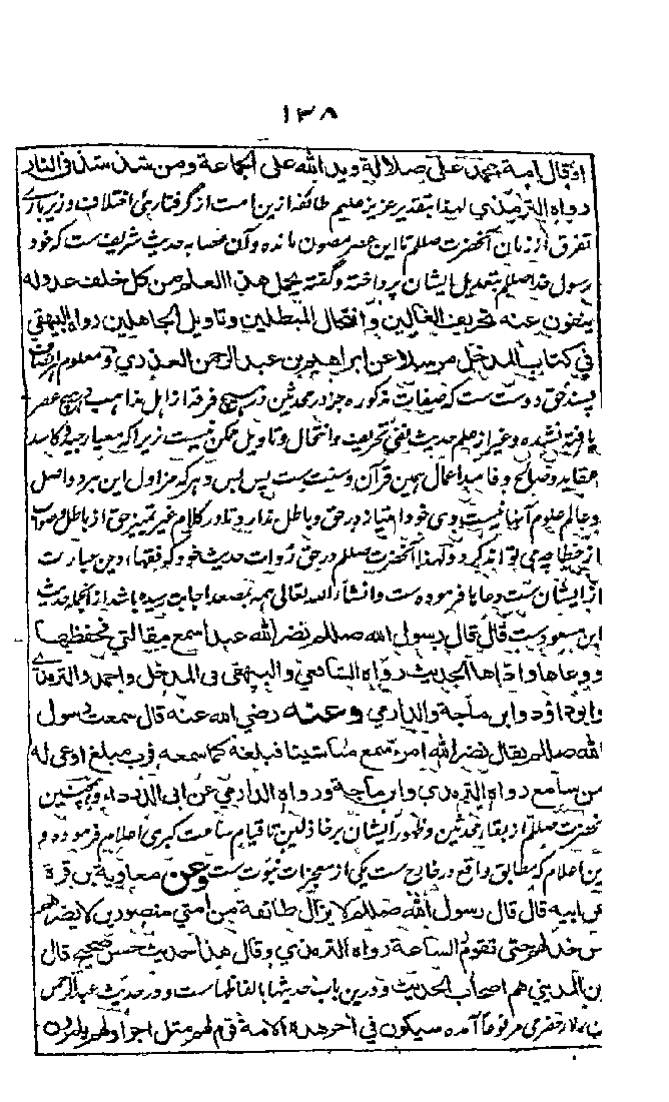 ۱۳۸
او قال امة محمد على ضلالة ويد الله على الجماعة ومن شذ شذ في النار
رواه الترمذي لهذا بتقدير عزيز عليم طائفه ازین امت از گرفتاری اختلاف و زیر باری
تفرق از زمان آنحضرت صلعم تا این عصر مصون مانده و آن عصابه حدیث شریف ست که خود
رسول خدا صلعم بتعدیل ایشان پرداخته و گفته يحمل هذا العلم من كل خلف عدوله
ينفون عنه تحريف الغالين وانتحال المبطلين وتاويل الجاهلين رواه البيهقي
في كتاب المدخل مرسلا عن ابراهيم بن عبد الرحمن العذري و معلوم
پسند حق دوست ست که صفات مذکوره جز در محدثین در هیچ فرقه از اهل مذاهب فی هیچ عصر
یافته نشده و غیر از علم حدیث نفی تحریف و انتحال و تاویل ممکن نیست زیرا که معیار جید و کاسد
عقاید و صالح و فاسد اعمال همین قرآن و سنت ست پس بس و هر که مزاول این هر دو اصل
و عالم علوم آنها نیست وی خود امتیاز در حق و باطل ندارد تا در کلام غیر تمیز حق از باطل و صواب
از خطا چه می تواند کرد و لهذا آنحضرت صلعم در حق رُوات حدیث خود که فقها دین عبارت
از ایشان ست دعاها فرموده ست و انشاء الله تعالی همه بمصعد اجابت رسیده باشد ازانجا حدیث
ابن مسعود ست قال قال رسول الله صلعم نضر الله عبدا سمع مقالتي فحفظها
ووعاها واداها الحديث رواه الشافعي والبيهقي في المدخل واحمد والترمذي
وابوداؤد وابن ماجة والدارمي وعنه رضي الله عنه قال سمعت رسول
الله صلعم يقال نضر الله امرء سمع منا شيئا فبلغه كما سمعه فرب مبلغ اوعى له
من سامع رواه الترمذي وابن ماجة ورواه الدارمي عن ابى الدرداء و همچنین
آنحضرت صلعم از بقاء محدثین و ظهور ایشان بر خاذلین تا قیام ساعت کبری اعلام فرموده و
این اعلام که مطابق واقع در خارج ست یکی از معجزات نبوت ست وعن معاوية بن قرة
عن ابيه قال قال رسول الله صلعم لا يزال طائفة من امتي منصورين لا يضرهم
من خذلهم حتى تقوم الساعة رواه الترمذي وقال هذا حديث حسن صحيح قال
ابن المديني هم اصحاب الحديث و درین باب حدیثها بالفاظها ست و در حدیث عبد الرحمن
بن علاء حضرمی مرفوعاً آمده سيكون في آخر هذه الامة قوم لهم مثل اجر اولهم يامرون